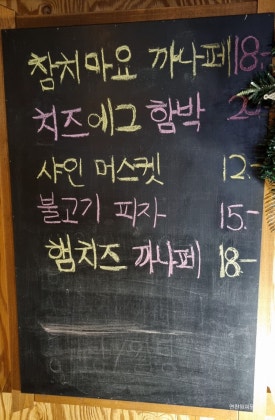 참치마요 까나페 18.-
치즈에그 함박
샤인 머스켓 12.-
불고기 피자 15.-
햄치즈 까나페 18.-